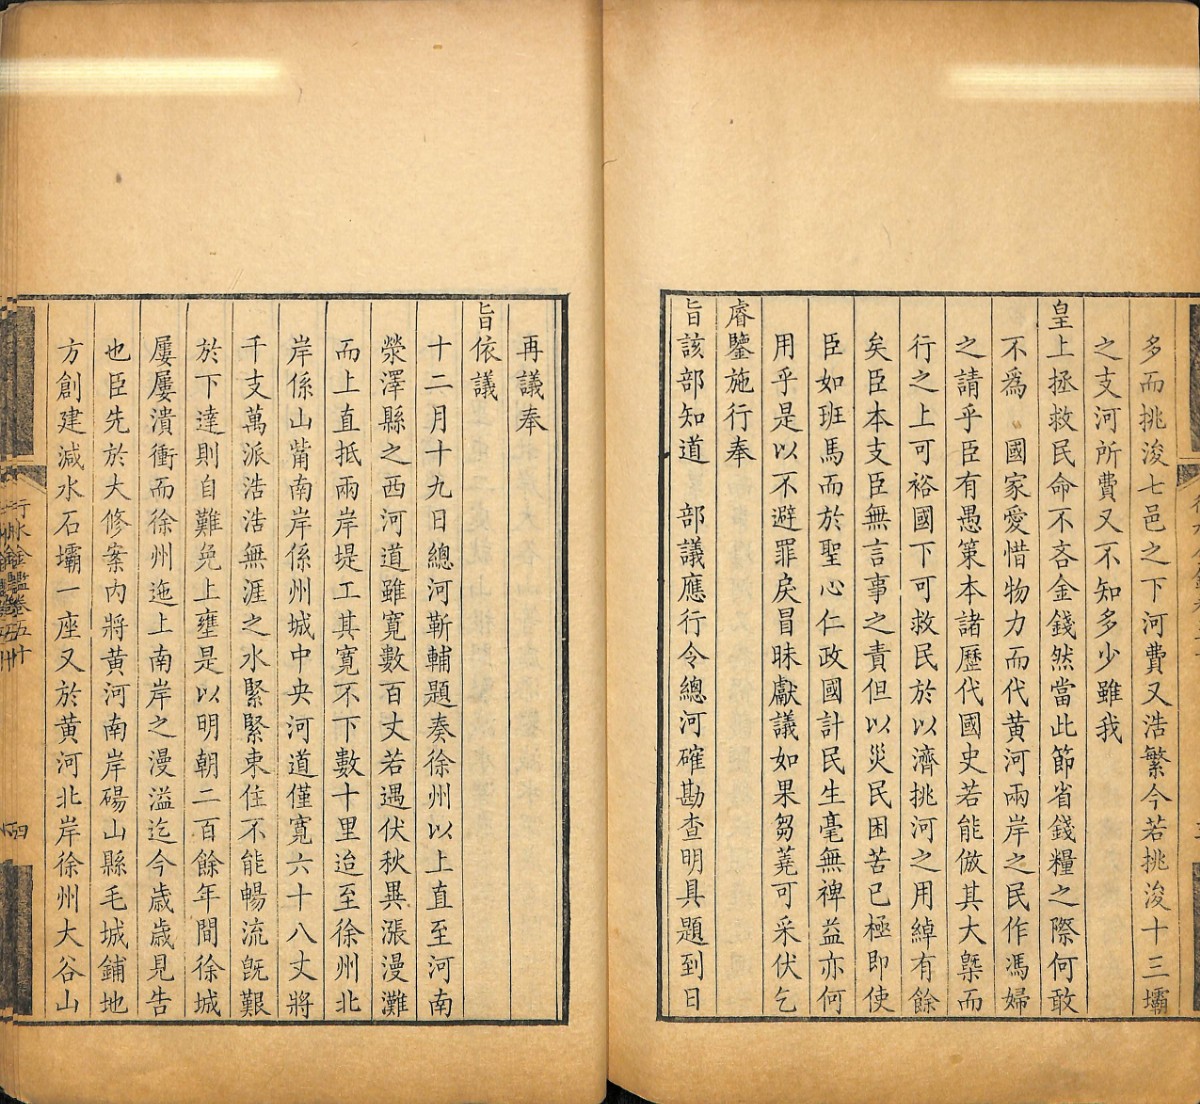 多而挑浚七邑之下河費又浩繁今若挑浚十三壩
之支河所費又不知多少雖我
皇上拯救民命不吝金錢然當此節省錢糧之際何敢
不爲　國家愛惜物力而代黃河兩岸之民作馮婦
之請乎臣有愚策本諸歷代國史若能倣其大槩而
行之上可裕國下可救民於以濟挑河之用綽有餘
矣臣本支臣無言事之責但以災民困苦已極即使
臣如班馬而於聖心仁政國計民生毫無裨益亦何
用乎是以不避罪戾冒昧獻議如果芻蕘可采伏乞
睿鑒施行奉
旨該部知道　部議應行令總河確勘查明具題到日
再議奉
旨依議
十二月十九日總河靳輔題奏徐州以上直至河南
滎澤縣之西河道雖寬數百丈若遇伏秋異漲漫灘
而上直抵兩岸堤工其寬不下數十里迨至徐州北
岸係山觜南岸係州城中央河道僅寬六十八丈將
千支萬派浩浩無涯之水緊緊束住不能暢流旣艱
於下達則自難免上壅是以明朝二百餘年間徐城
屢屢潰衝而徐州迤上南岸之漫溢迄今歲歲見告
也臣先於大修案內將黃河南岸碭山縣毛城鋪地
方創建減水石壩一座又於黃河北岸徐州大谷山
行水金鑑卷五十
四